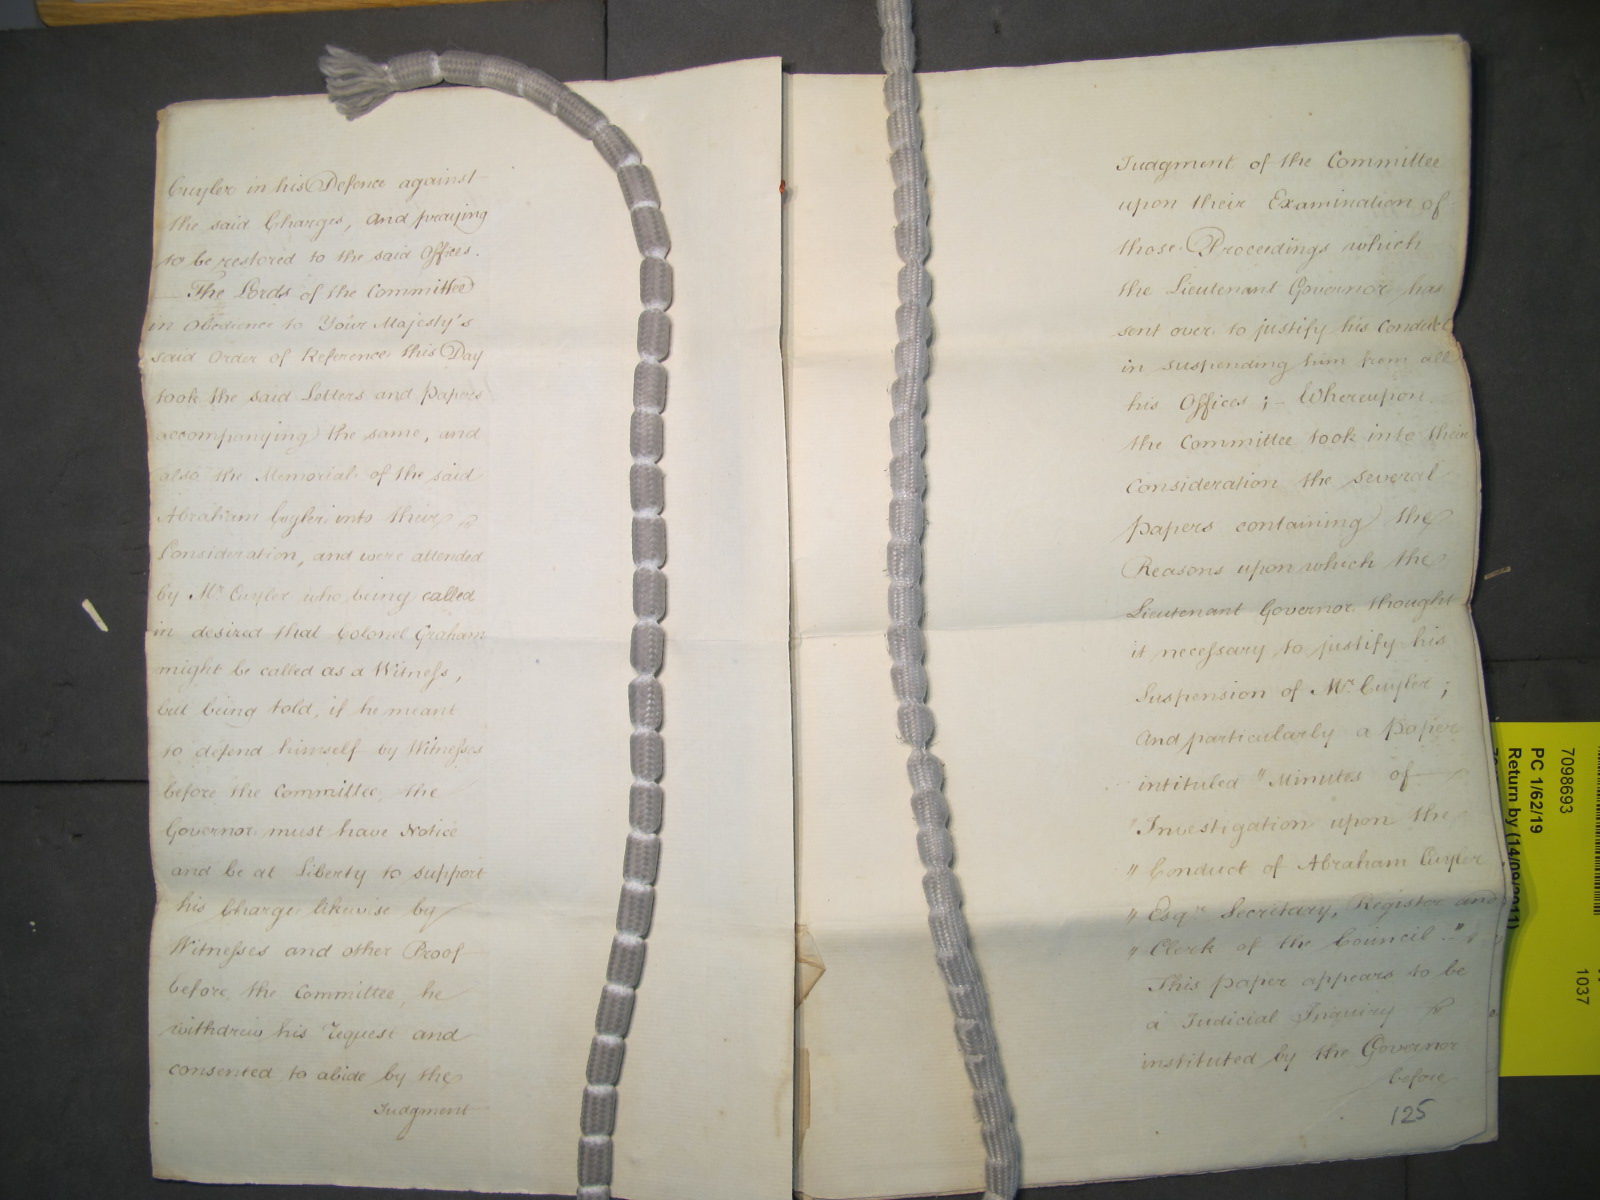 Cuyler in his Defence against
the said Charges, and praying
to be restored to the said Offices.
The Lords of the Committee
in Obedience to Your Majesty's
said Order of Reference this Day
took the said Letters and Papers
accompanying the same, and
also the Memorial of the said
Abraham Cuyler into their
Consideration, and were attended
by Mr. Cuyler who being called
in desired that Colonel Graham
might be called as a Witness,
but being told, if he meant
to defend himself by Witnesses
before the Committee, the
Governor must have Notice
and be at Liberty to support
his Charge likewise by
Witnesses and other Proof
before the Committee, he
withdrew his request and
consented to abide by the
Judgment
Judgment of the Committee
upon their Examination of
those Proceedings which
the Lieutenant Governor has
sent over to justify his Conduct
in suspending him from all
his Offices; - Whereupon
the Committee took into their
Consideration the several
Papers containing the
Reasons upon which the
Lieutenant Governor thought
it necessary to justify his
Suspension of Mr. Cuyler;
And particularly a Paper
intituled "Minutes of
"Investigation upon the
"Conduct of Abraham Cuyler
"Esqr. Secretary, Register and
"Clerk of the Council."
This paper appears to be
a Judicial Inquiry
instituted by the Governor
before
125
7098693
PC 1/62/19
Return by (14/09/2011)
1037